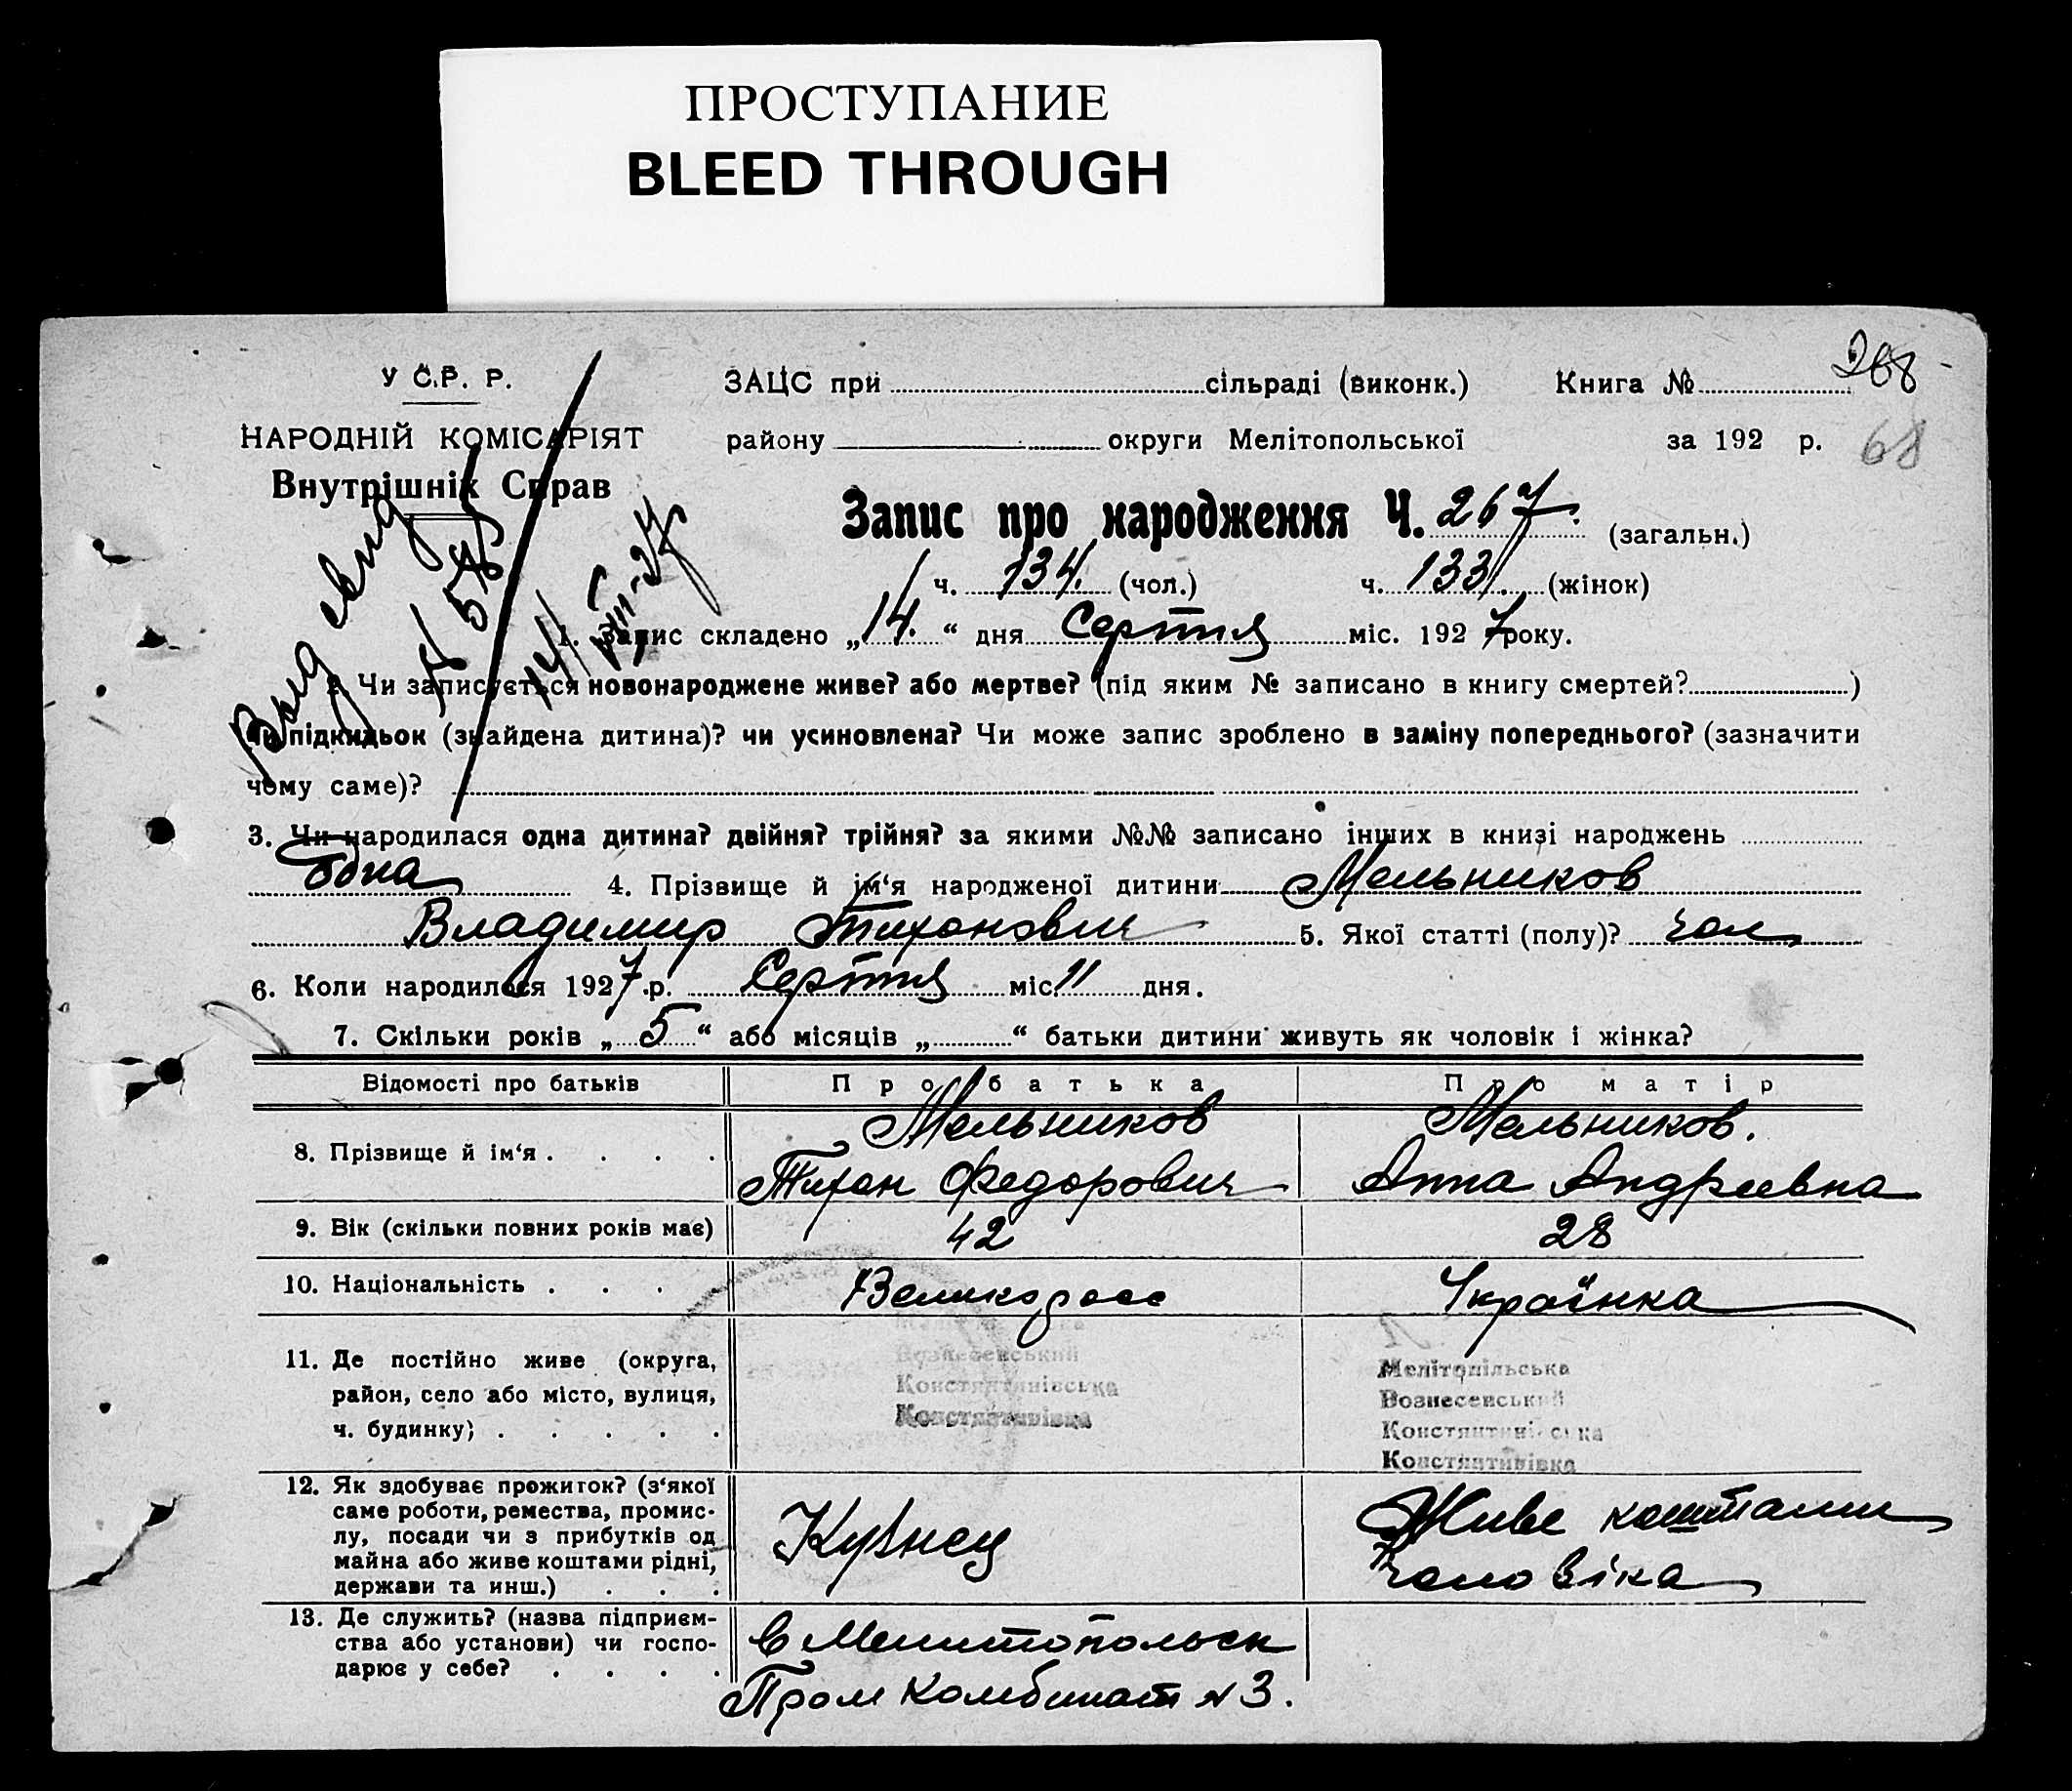 ПРОСТУПАНИЕ
BLEED THROUGH
268
68
У С.Р. Р.
НАРОДНІЙ КОМІСАРІЯТ
Внутрішніх Справ
ЗАЦС при сільраді (виконк.) Книга №
району округи Мелітопольської за 192 р.
Запис про народження Ч. 267. (загальн.)
ч. 134. (чол.) ч. 133 (жінок)
1. Запис складено „14.“ дня Серпня міс. 1927 року.
2. Чи записується новонароджене живе? або мертве? (під яким № записано в книгу смертей? )
Чи підкидьок (знайдена дитина)? чи усиновлена? Чи може запис зроблено в заміну попереднього? (зазначити
чому саме)?
3. Чи народилася одна дитина? двійня? трійня? за якими №№ записано інших в книзі народжень
одна 4. Прізвище й ім‘я народженої дитини Мельников
Владимир Тихонович 5. Якої статті (полу)? чол
6. Коли народилося 1927 р. Серпня міс. 11 дня.
7. Скільки років „5“ або місяців „ “ батьки дитини живуть як чоловік і жінка?
Відомості про батьків Про батька Про матір
8. Прізвище й ім‘я . . . . Мельников Мельников.
Тихон Федорович Анна Андреевна
9. Вік (скільки повних років має) 42 28
10. Національність . . . Великоросс Українка
11. Де постійно живе (округа,
район, село або місто, вулиця,
ч. будинку) . . . . .
Вознесенський
Константинівська
Константинівка
Мелітопільська
Вознесенський
Константинівська
Константинівка
12. Як здобуває прожиток? (з‘якої
саме роботи, ремества, промис-
лу, посади чи з прибутків од
майна або живе коштами рідні,
держави та инш.) . . .
Кузнец
Живе коштами
чоловіка
13. Де служить? (назва підприєм-
ства або установи) чи госпо-
дарює у себе? . . . .
в Мелитопольск
Пром Комбинат № 3.